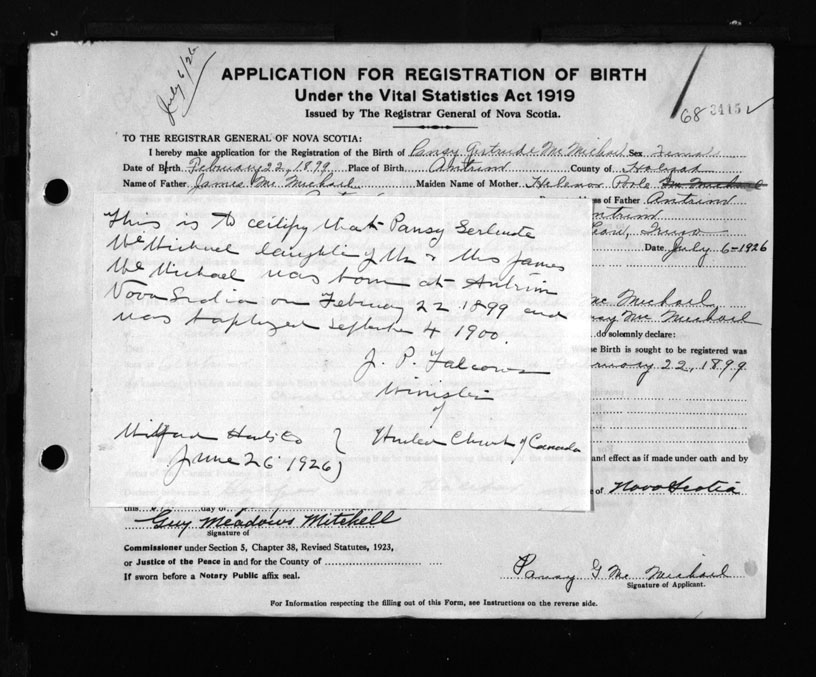 July 6/26
APPLICATION FOR REGISTRATION OF BIRTH
Under the Vital Statistics Act 1919
Issued by The Registrar General of Nova Scotia.
68 34151
TO THE REGISTRAR GENERAL OF NOVA SCOTIA:
I hereby make application for the Registration of the Birth of Pansy Gertrude Mc Michael Sex Female
Date of Birth February 22, 1899 Place of Birth Antrim County of Halifax
Name of Father James Mc Michael Maiden Name of Mother Helenor Pole Mc Michael
of Father Antrim
Antrim
Truro
Date July 6-1926
This is to certify that Pansy Gertrude
McMichael daughter of Mr & Mrs James
McMichael was born at Antrim
Nova Scotia on February 22 1899 and
was baptized September 4 1900.
J. P. Falconer
Minister
of
Milford Hants Co } United Church of Canada
June 26 1926
Mc Michael
Mc Michael
do solemnly declare:
Birth is sought to be registered was
22, 1899
and effect as if made under oath and by
of Nova Scotia
this day of
Guy Meadows Mitchell
Signature of
Commissioner under Section 5, Chapter 38, Revised Statutes, 1923,
or Justice of the Peace in and for the County of
If sworn before a Notary Public affix seal.
Pansy G Mc Michael
Signature of Applicant.
For Information respecting the filling out of this Form, see Instructions on the reverse side.